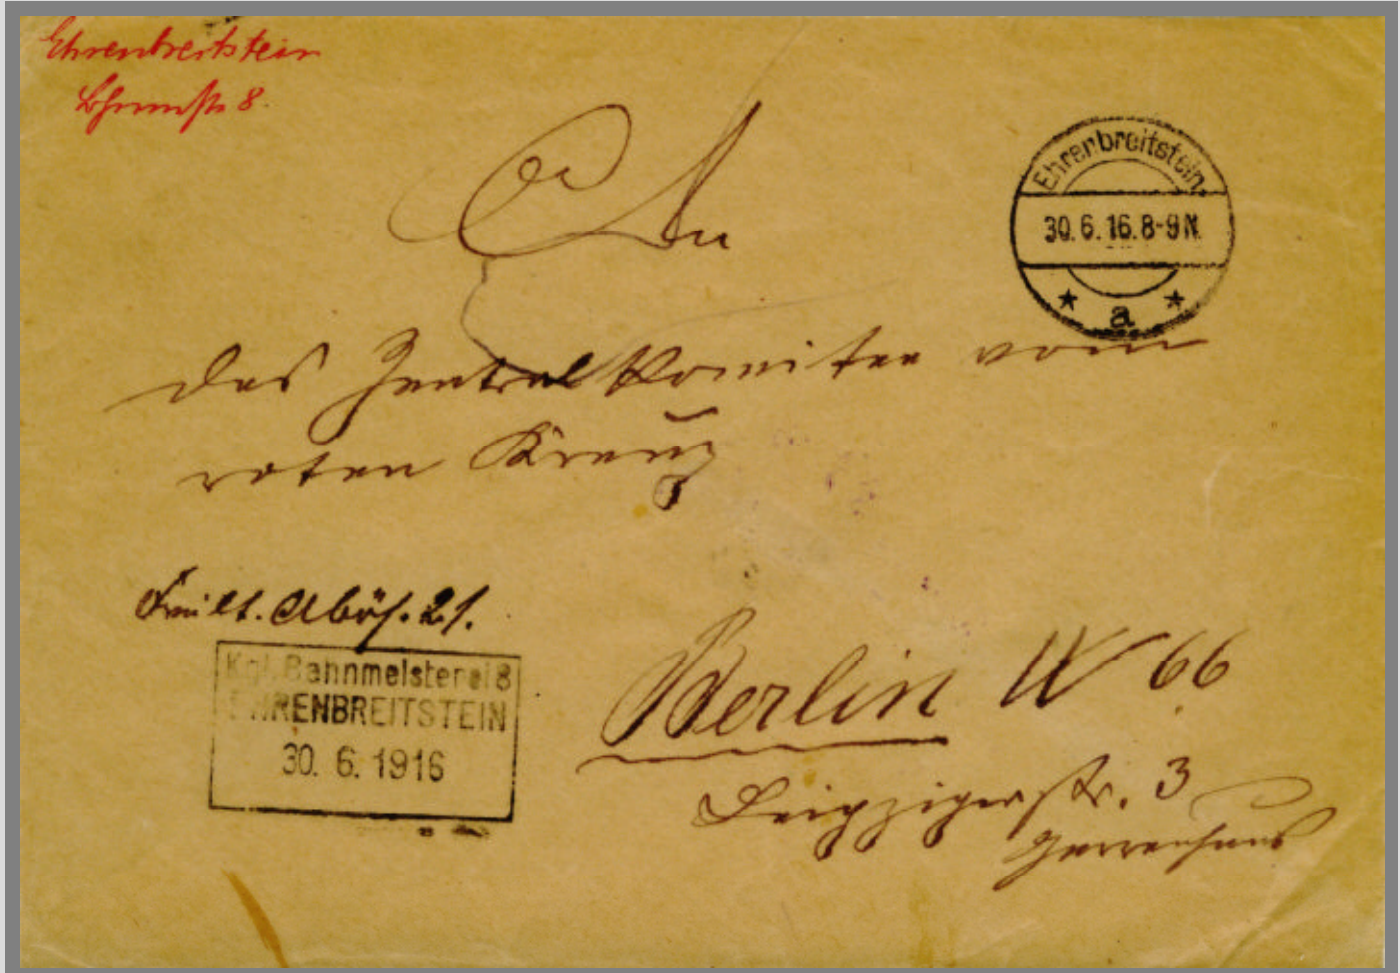 Ehrenbreitstein
8
An
Ehrenbreitstein.
30.6.16.8-9N.
* a *
das Zentralkomitee vom
roten Kreuz
Frei lt. Ablös. 21.
Kgl. Bahnmeisterei 8
EHRENBREITSTEIN
30. 6. 1916
Berlin W 66
Leipzigerstr. 3
Herrenhaus